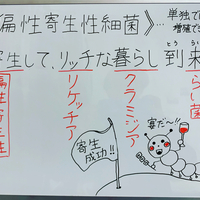 偏性寄生性細菌》…
単独で
増殖でき
寄生して、リッチな暮らし 到来
とう らい
リケッチア
クラミジア
らい菌
偏性寄生性
寄生
成功!!
宴だ〜!!